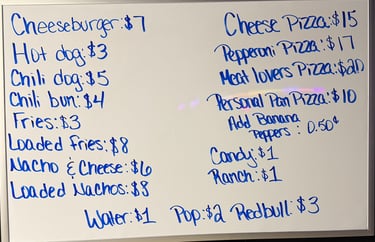 Cheeseburger: $7
Hot dog: $3
Chili dog: $5
Chili bun: $4
Fries: $3
Loaded Fries: $8
Nacho & Cheese: $6
Loaded Nachos: $8
Cheese Pizza: $15
Pepperoni Pizza: $17
Meat lovers Pizza: $20
Personal Pan Pizza: $10
Add Banana
Peppers : 0.50¢
Candy: $1
Ranch: $1
Water: $1 Pop: $2 Redbull: $3